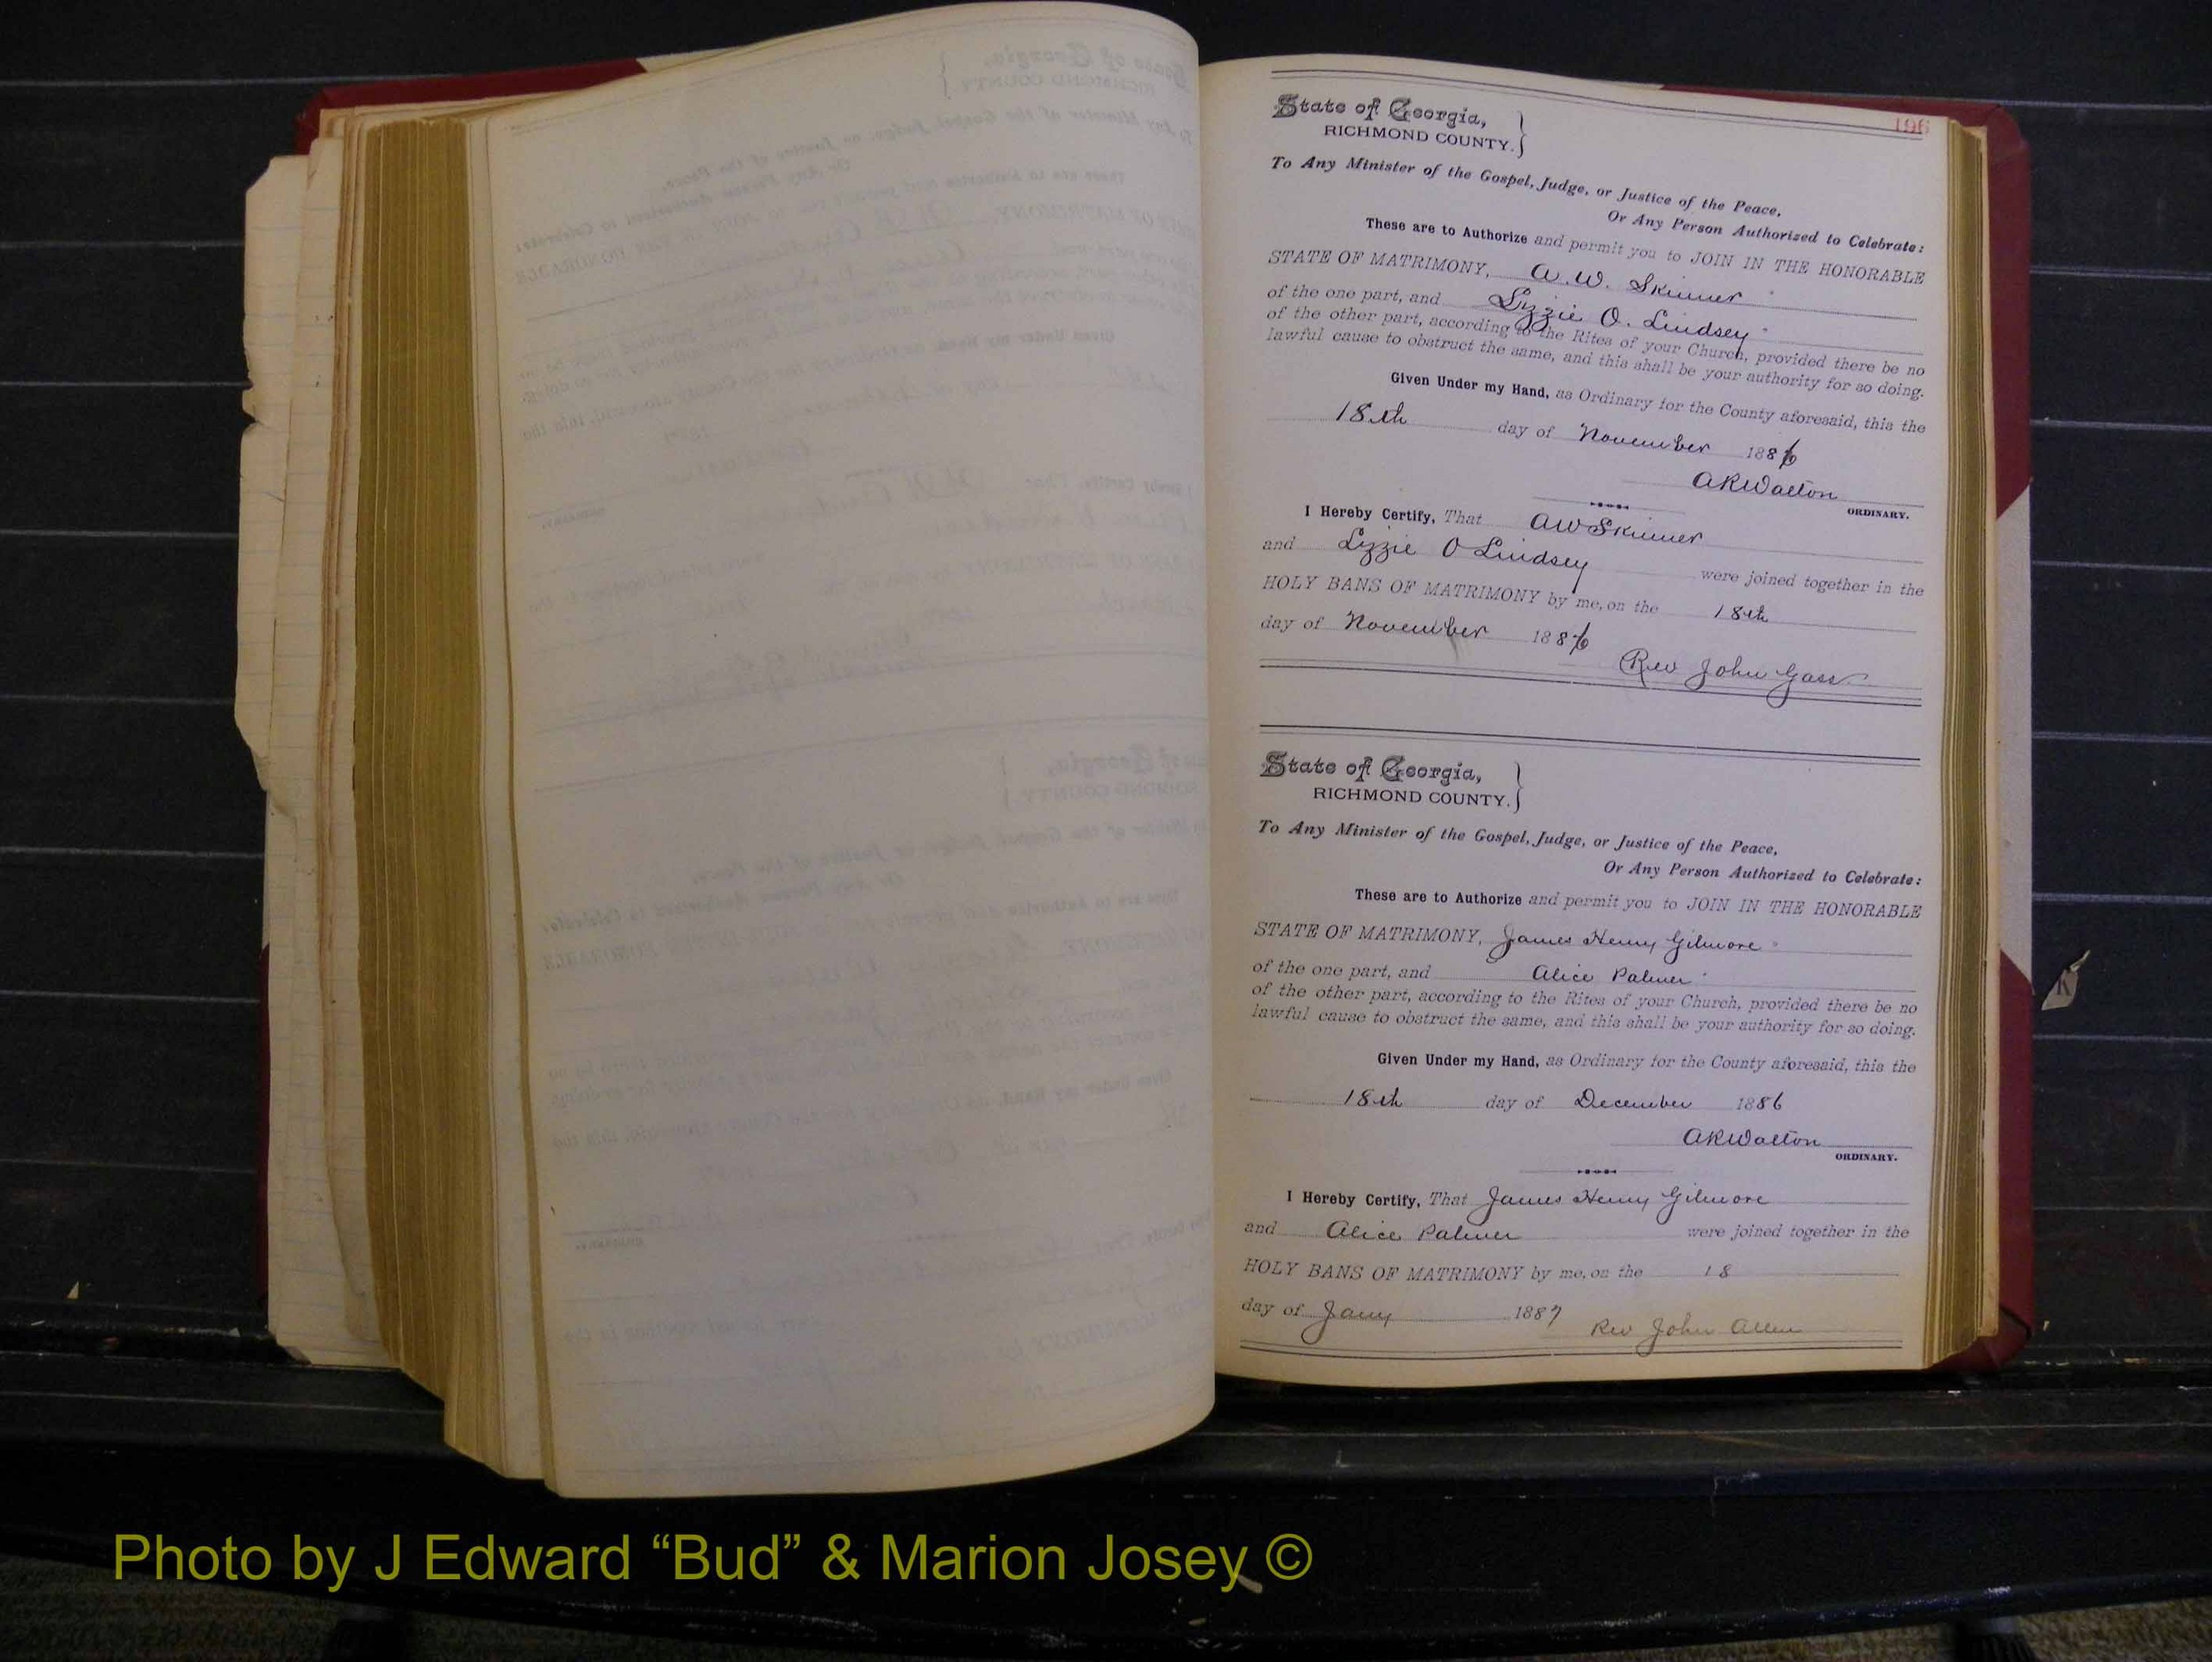 196
State of Georgia,
RICHMOND COUNTY.
To Any Minister of the Gospel, Judge, or Justice of the Peace,
Or Any Person Authorized to Celebrate:
These are to Authorize and permit you to JOIN IN THE HONORABLE
STATE OF MATRIMONY, A. W. Skinner
of the one part, and Lizzie O. Lindsey
of the other part, according to the Rites of your Church, provided there be no
lawful cause to obstruct the same, and this shall be your authority for so doing.
Given Under my Hand, as Ordinary for the County aforesaid, this the
18th day of November 1886
A R Walton
ORDINARY.
I Hereby Certify, That A W Skinner
and Lizzie O Lindsey were joined together in the
HOLY BANS OF MATRIMONY by me, on the 18th
day of November 1886
Rev John Gass
State of Georgia,
RICHMOND COUNTY.
To Any Minister of the Gospel, Judge, or Justice of the Peace,
Or Any Person Authorized to Celebrate:
These are to Authorize and permit you to JOIN IN THE HONORABLE
STATE OF MATRIMONY, James Henry Gilmore
of the one part, and Alice Palmer
of the other part, according to the Rites of your Church, provided there be no
lawful cause to obstruct the same, and this shall be your authority for so doing.
Given Under my Hand, as Ordinary for the County aforesaid, this the
18th day of December 1886
A R Walton
ORDINARY.
I Hereby Certify, That James Henry Gilmore
and Alice Palmer were joined together in the
HOLY BANS OF MATRIMONY by me, on the 18
day of Jany 1887
Rev John Allen
Photo by J Edward “Bud” & Marion Josey ©